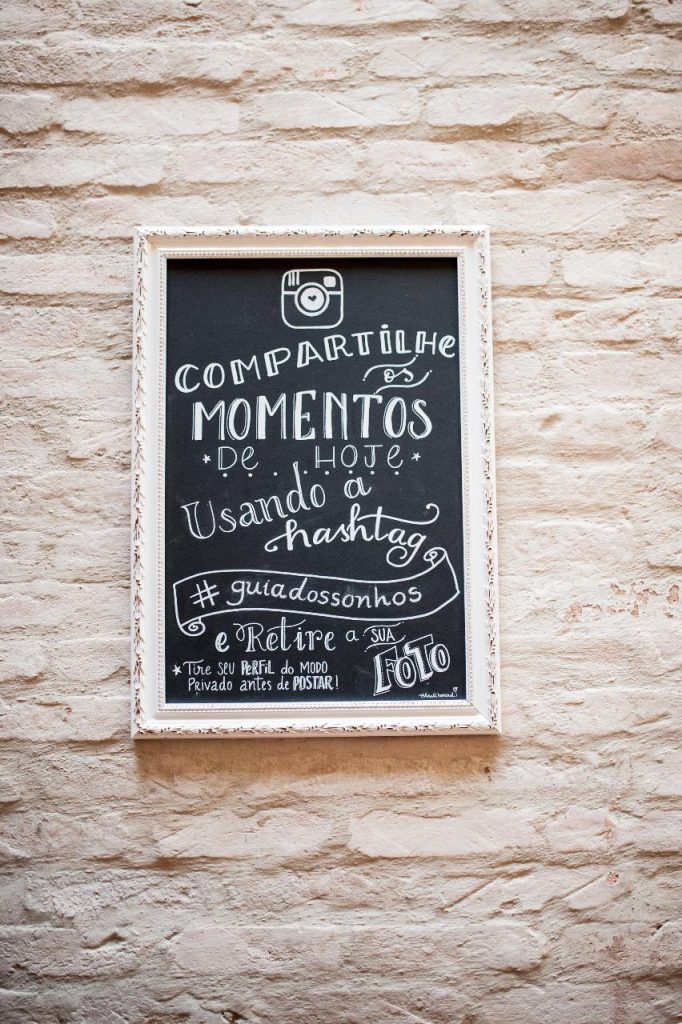 COMPARTILHE
os
MOMENTOS
DE HOJE
Usando a
hashtag
#guiadossonhos
e Retire a SUA
FOTO
* Tire SEU PERFIL do MODO
PRIVADO antes de POSTAR!